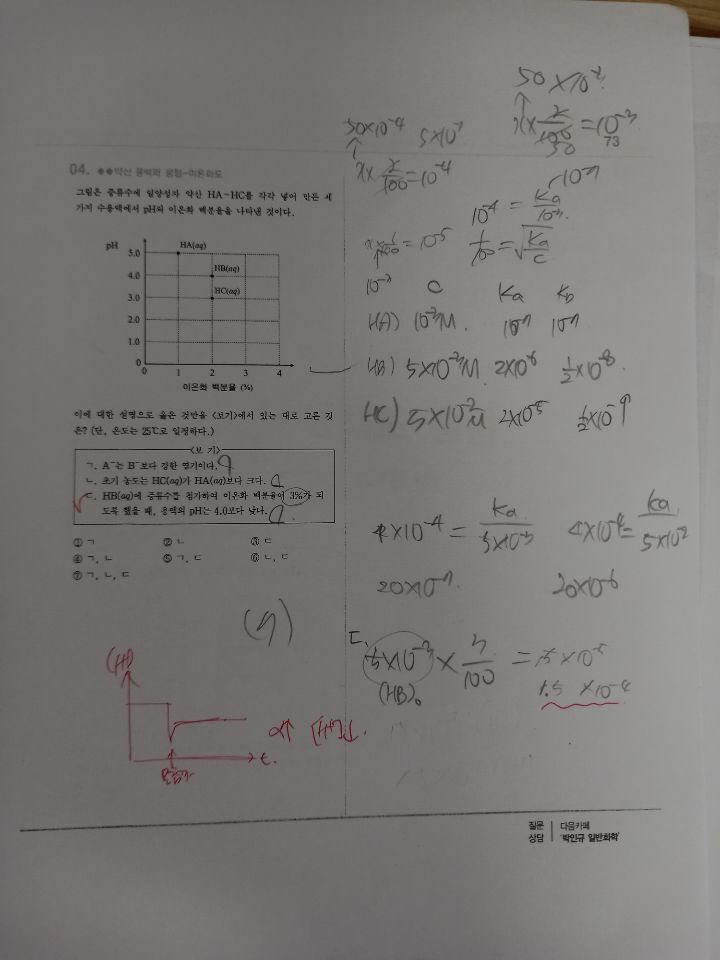 04. ●●약산 용액의 평형-이온화도
그림은 증류수에 일양성자 약산 HA~HC를 각각 넣어 만든 세
가지 수용액에서 pH와 이온화 백분율을 나타낸 것이다.
pH
5.0
4.0
3.0
2.0
1.0
0
HA(aq)
HB(aq)
HC(aq)
0 1 2 3 4
이온화 백분율 (%)
이에 대한 설명으로 옳은 것만을 <보기>에서 있는 대로 고른 것
은? (단, 온도는 25℃로 일정하다.)
<보 기>
ㄱ. A⁻는 B⁻보다 강한 염기이다.
ㄴ. 초기 농도는 HC(aq)가 HA(aq)보다 크다.
ㄷ. HB(aq)에 증류수를 첨가하여 이온화 백분율이 3%가 되
도록 했을 때, 용액의 pH는 4.0보다 낮다.
① ㄱ ② ㄴ ③ ㄷ
④ ㄱ, ㄴ ⑤ ㄱ, ㄷ ⑥ ㄴ, ㄷ
⑦ ㄱ, ㄴ, ㄷ
(4)
α↑ [H⁺]↓.
t.
50×10⁻⁴
x× 2/100 =10⁻⁴
= 10⁻³
73
= 10⁻⁵
1/100 = √Ka/C
C Ka Kb
HA) 10⁻³M.
HB) 5×10⁻³M. 2×10⁻⁶ 1/2×10⁻⁸
HC) 5×10⁻²M 2×10⁻⁵ 1/2×10⁻⁹
4×10⁻⁴ = Ka/5×10⁻³
4×10⁻⁴ = Ka/5×10⁻²
20×10⁻⁷
20×10⁻⁶
ㄷ.
5×10⁻³ × 3/100 = 15×10⁻⁵
(HB)₀
1.5 ×10⁻⁴
질문 다음카페
상담 '박인규 일반화학'